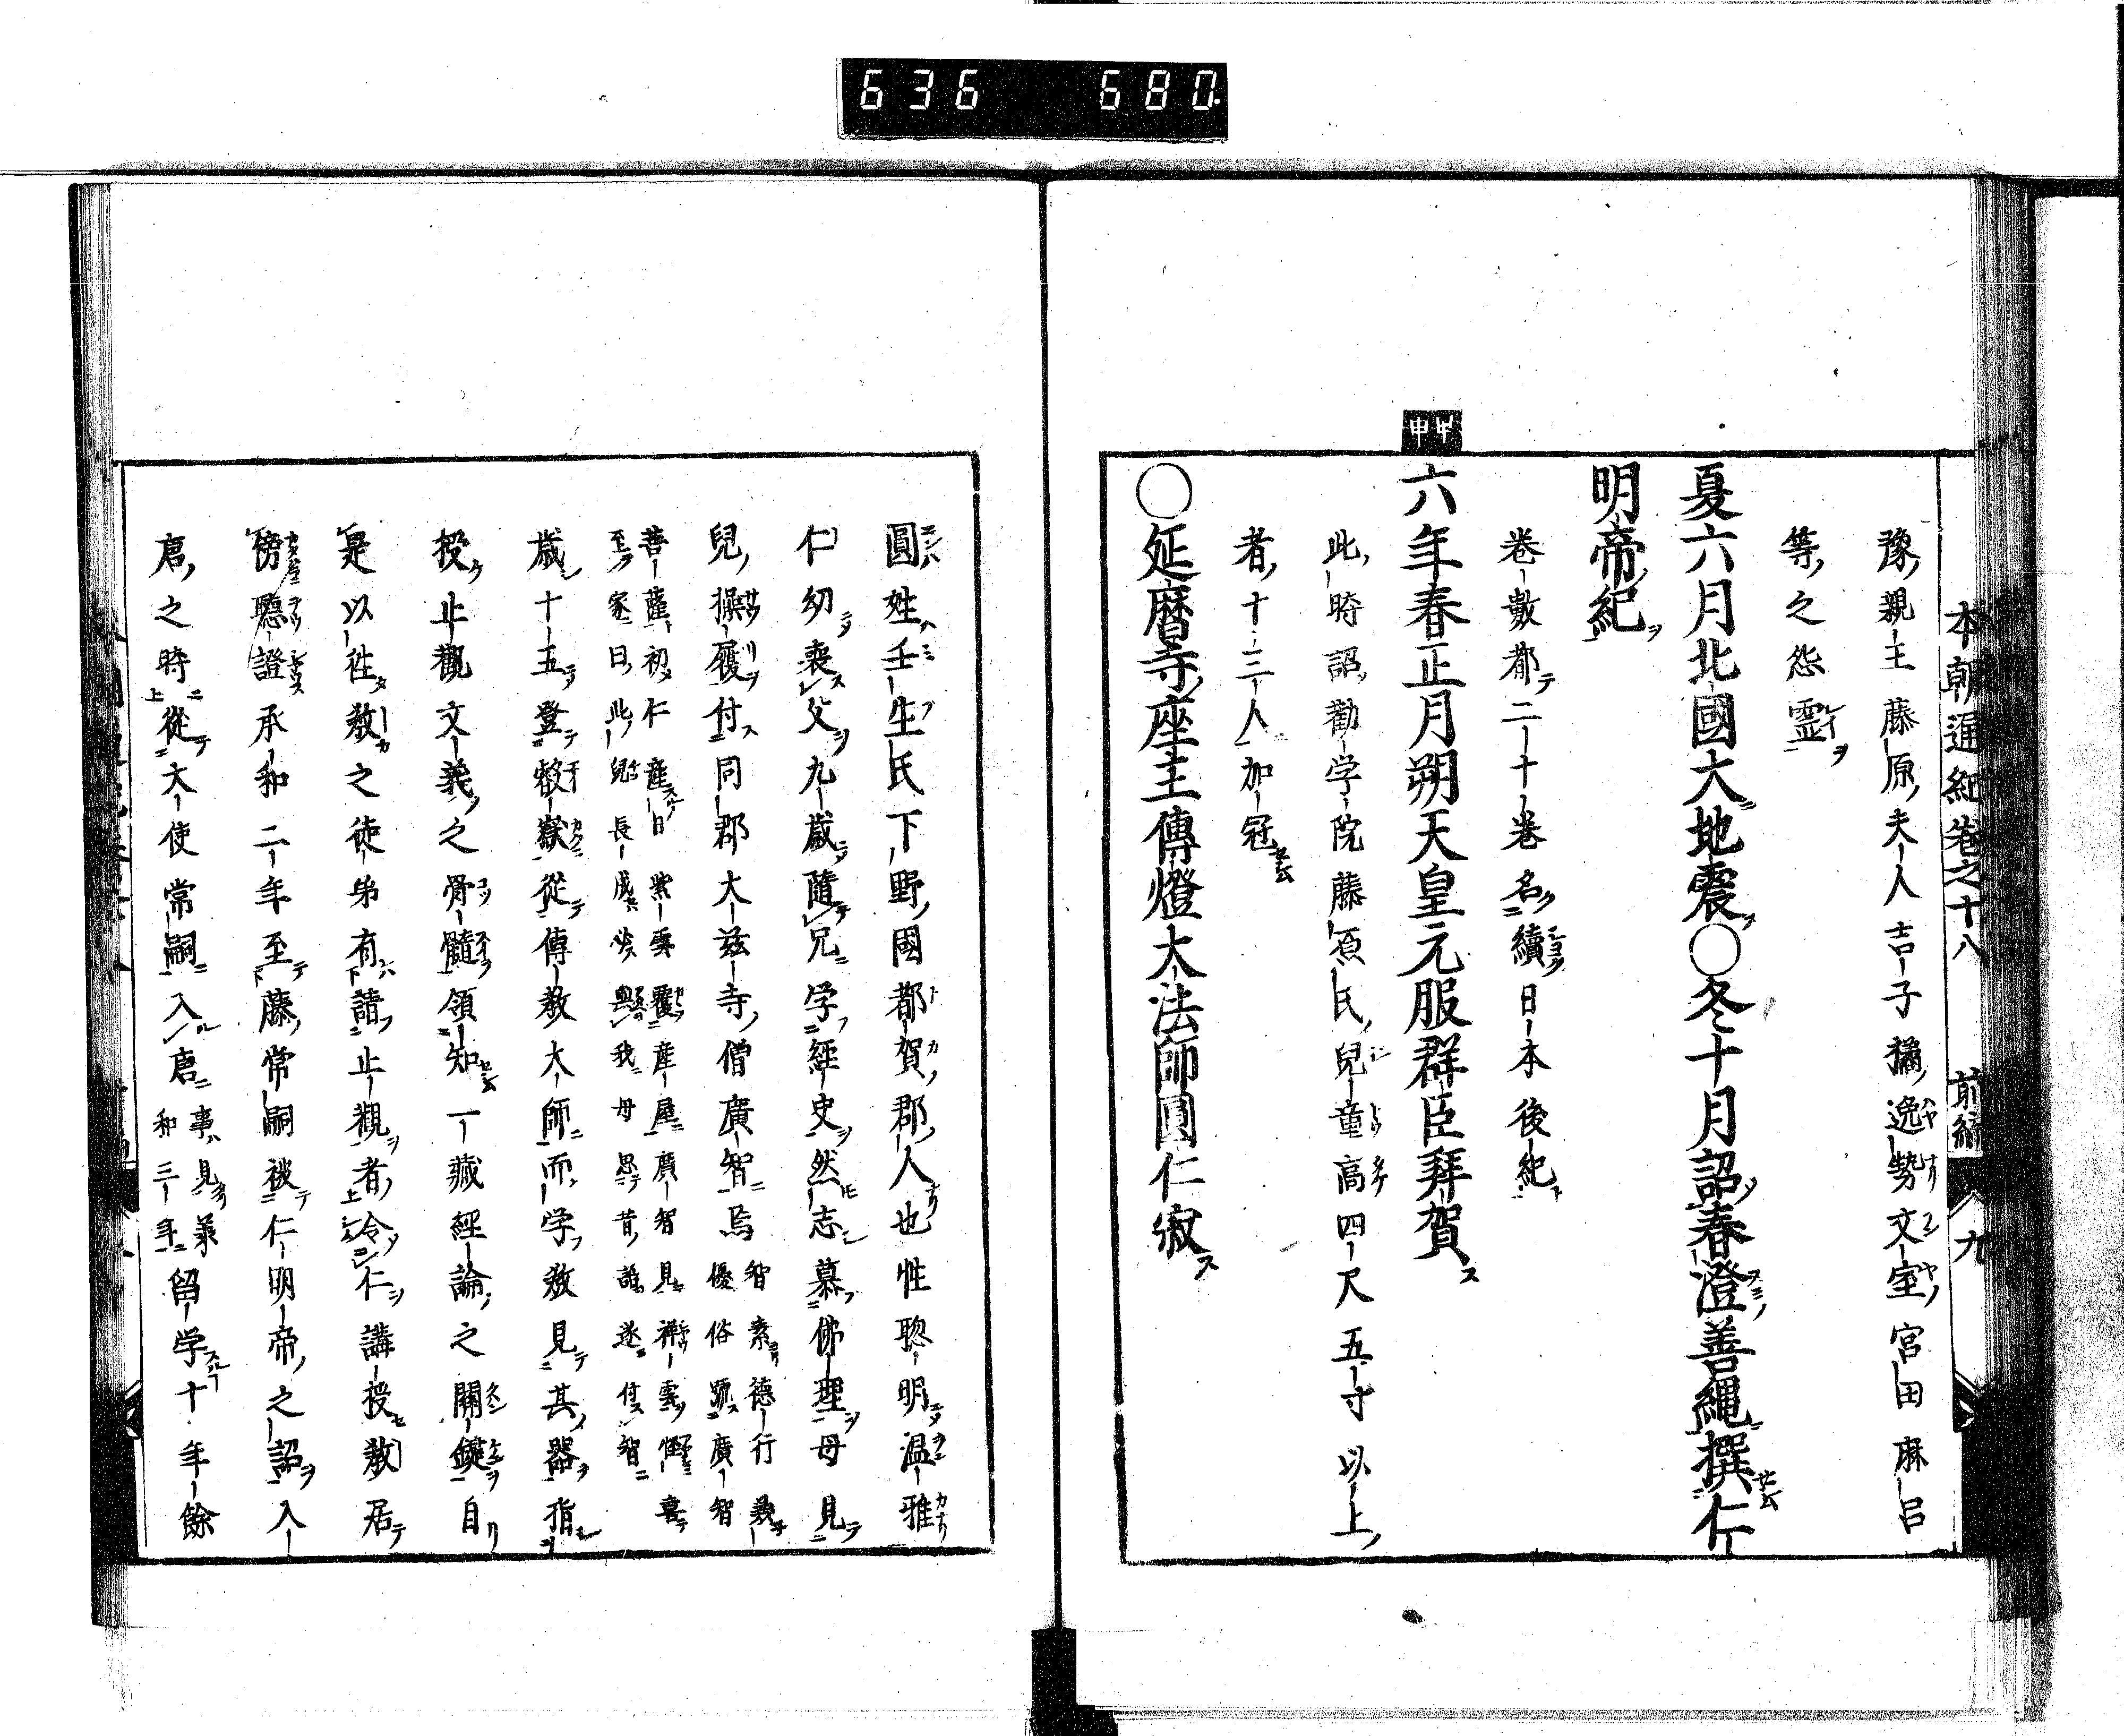 636 680
本朝通紀卷之十八 前編 九
豫親王藤原夫人吉子橘逸勢文室宮田麻呂
等之怨霊
夏六月北國大地震○冬十月詔春澄善縄撰仁
明帝紀
卷數都二十卷名續日本後紀
甲申
六年春正月朔天皇元服群臣拜賀
此時詔勸学院藤原氏兒童高四尺五寸以上
者十三人加冠
○延曆寺座主傳燈大法師圓仁寂
圓姓壬生氏下野國都賀郡人也性聡明温雅
仁幼喪父九歲隨兄学經史然志慕佛理母見
兒操履付同郡大茲寺僧廣智焉智素德行義
優俗號廣智
菩薩初仁産日紫雲覆産屋廣智見祥雲
至家曰此兒長成必與我母思昔語遂付智
歲十五登叡嶽從傳教大師而学教見其器指
授止觀文義之骨髓領知一藏經論之關鍵自
是以往教之徒弟有請止觀者令仁講授教居
傍聽證承和二年至藤常嗣被仁明帝之詔入
唐之時從大使常嗣入唐事見承
和三年留学十年餘